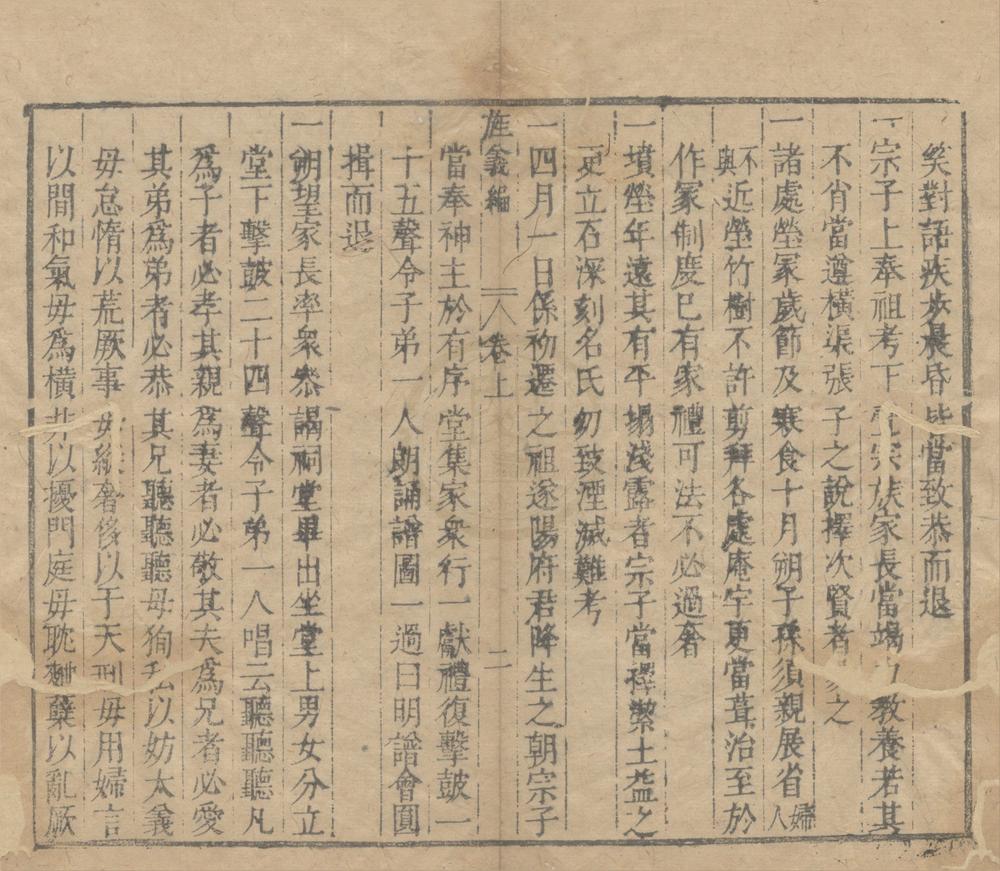 笑對語疾步晨昏皆當致恭而退
一宗子上奉祖考下壹宗族家長當竭力教養若其
不肖當遵橫渠張子之說擇次賢者易之
一諸處塋冢歲節及寒食十月朔子孫須親展省婦人
不與近塋竹樹不許剪拜各處庵宇更當葺治至於
作冢制度已有家禮可法不必過奢
一墳塋年遠其有平塌淺露者宗子當擇潔土益之
更立石深刻名氏勿致湮滅難考
一四月一日係初遷之祖遂陽府君降生之朝宗子
旌義編 卷上 二
當奉神主於有序堂集家衆行一獻禮復擊鼓一
十五聲令子弟一人朗誦譜圖一過曰明譜會圓
揖而退
一朔望家長率衆叅謁祠堂畢出坐堂上男女分立
堂下擊鼓二十四聲令子弟一人唱云聽聽聽凡
爲子者必孝其親爲妻者必敬其夫爲兄者必愛
其弟爲弟者必恭其兄聽聽聽毋徇私以妨大義
毋怠惰以荒厥事毋縱奢侈以干天刑毋用婦言
以間和氣毋爲橫非以擾門庭毋耽麯櫱以亂厥